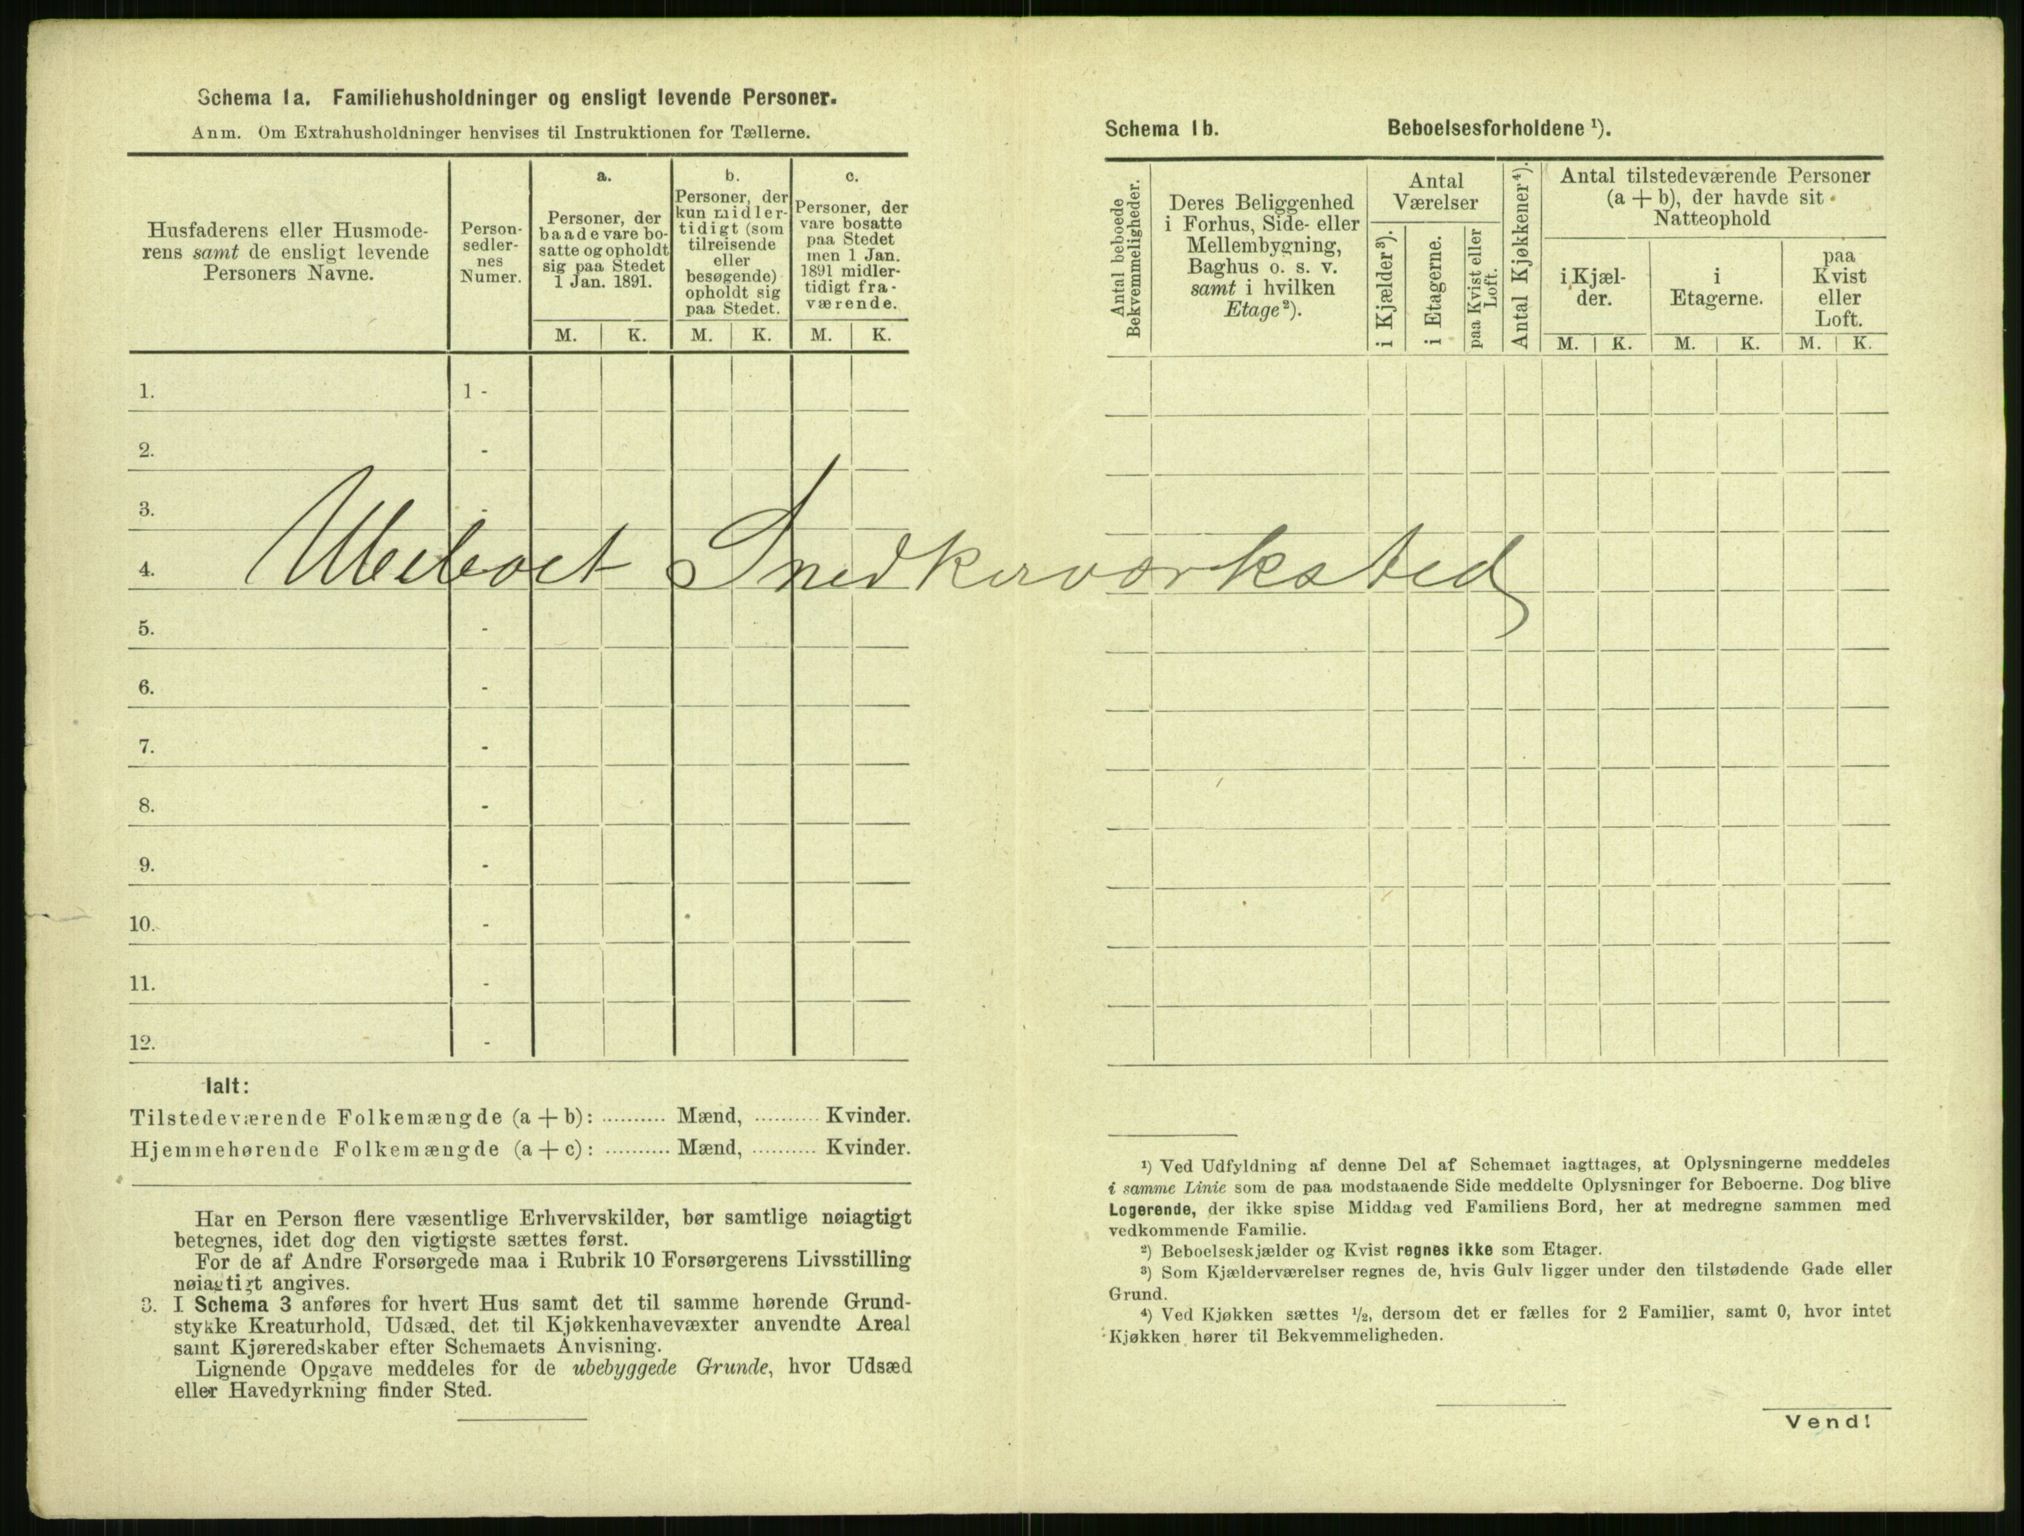 Schema 1a. Familiehusholdninger og ensligt levende Personer.
Anm. Om Extrahusholdninger henvises til Instruktionen for Tællerne.
Husfaderens eller Husmode-
rens samt de ensligt levende
Personers Navne.
Person-
sedler-
nes
Numer.
a.
Personer, der
baade vare bo-
satte og opholdt
sig paa Stedet
1 Jan. 1891.
b.
Personer, der
kun midler-
tidigt (som
tilreisende
eller
besøgende)
opholdt sig
paa Stedet.
c.
Personer, der
vare bosatte
paa Stedet
men 1 Jan.
1891 midler-
tidigt fra-
værende.
M. K. M. K. M. K.
1. 1 -
2. -
3. -
4.
Ubeboet Snedkerværksted
5. -
6. -
7. -
8. -
9. -
10. -
11. -
12. -
Ialt:
Tilstedeværende Folkemængde (a + b): .......... Mænd, .......... Kvinder.
Hjemmehørende Folkemængde (a + c): .......... Mænd, .......... Kvinder.
Har en Person flere væsentlige Erhvervskilder, bør samtlige nøiagtigt
betegnes, idet dog den vigtigste sættes først.
For de af Andre Forsørgede maa i Rubrik 10 Forsørgerens Livsstilling
nøiagtigt angives.
3. I Schema 3 anføres for hvert Hus samt det til samme hørende Grund-
stykke Kreaturhold, Udsæd, det til Kjøkkenhavevæxter anvendte Areal
samt Kjøreredskaber efter Schemaets Anvisning.
Lignende Opgave meddeles for de ubebyggede Grunde, hvor Udsæd
eller Havedyrkning finder Sted.
Schema 1b. Beboelsesforholdene ¹).
Antal beboede
Bekvemmeligheder.
Deres Beliggenhed
i Forhus, Side- eller
Mellembygning,
Baghus o. s. v.
samt i hvilken
Etage²).
Antal
Værelser
i Kjælder³).
i Etagerne.
paa Kvist eller
Loft.
Antal Kjøkkener⁴).
Antal tilstedeværende Personer
(a + b), der havde sit
Natteophold
i Kjæl-
der.
i
Etagerne.
paa
Kvist
eller
Loft.
M. K. M. K. M. K.
¹) Ved Udfyldning af denne Del af Schemaet iagttages, at Oplysningerne meddeles
i samme Linie som de paa modstaaende Side meddelte Oplysninger for Beboerne. Dog blive
Logerende, der ikke spise Middag ved Familiens Bord, her at medregne sammen med
vedkommende Familie.
²) Beboelseskjælder og Kvist regnes ikke som Etager.
³) Som Kjælderværelser regnes de, hvis Gulv ligger under den tilstødende Gade eller
Grund.
⁴) Ved Kjøkken sættes ½, dersom det er fælles for 2 Familier, samt 0, hvor intet
Kjøkken hører til Bekvemmeligheden.
Vend!